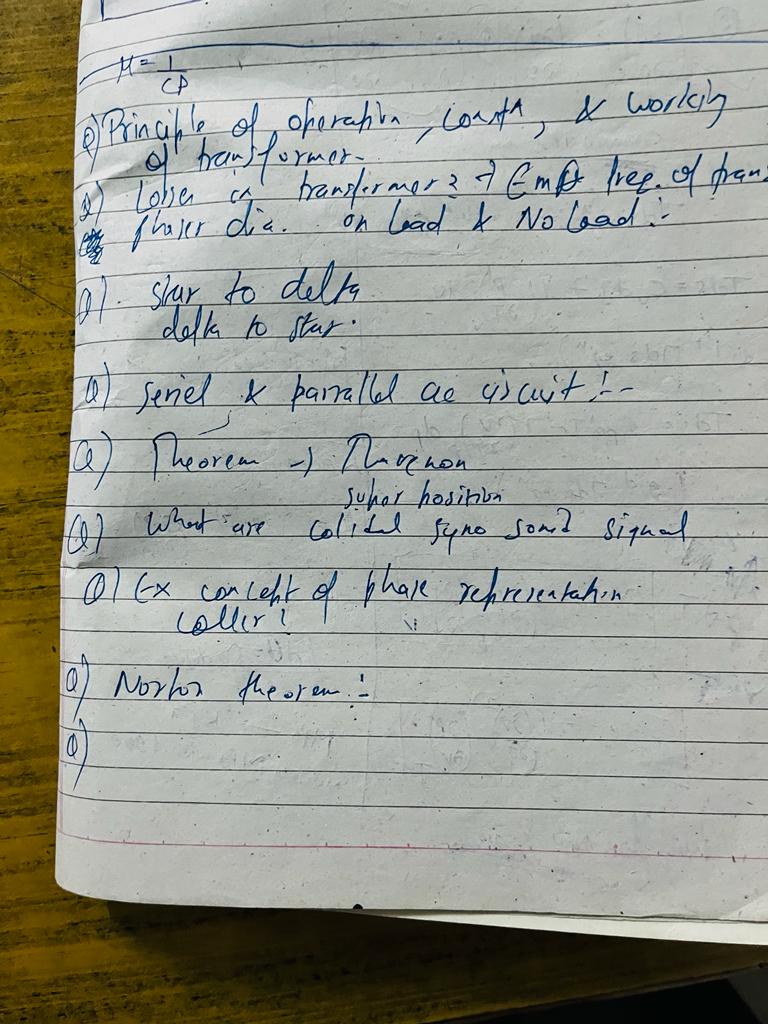 μ = 1/CP
Q) Principle of operation, constn, & working
of transformer-
Q) Losses in transformer? → Emf freq. of trans
phaser dia. on load & No load :-
Q). star to delta
delta to star.
Q) series & parrallel ac circuit :-
Q) Theorem → Thevenon
super position
Q) What are signal
Q) Ex concept of phase representation
Q) Norton theorem :-
Q)